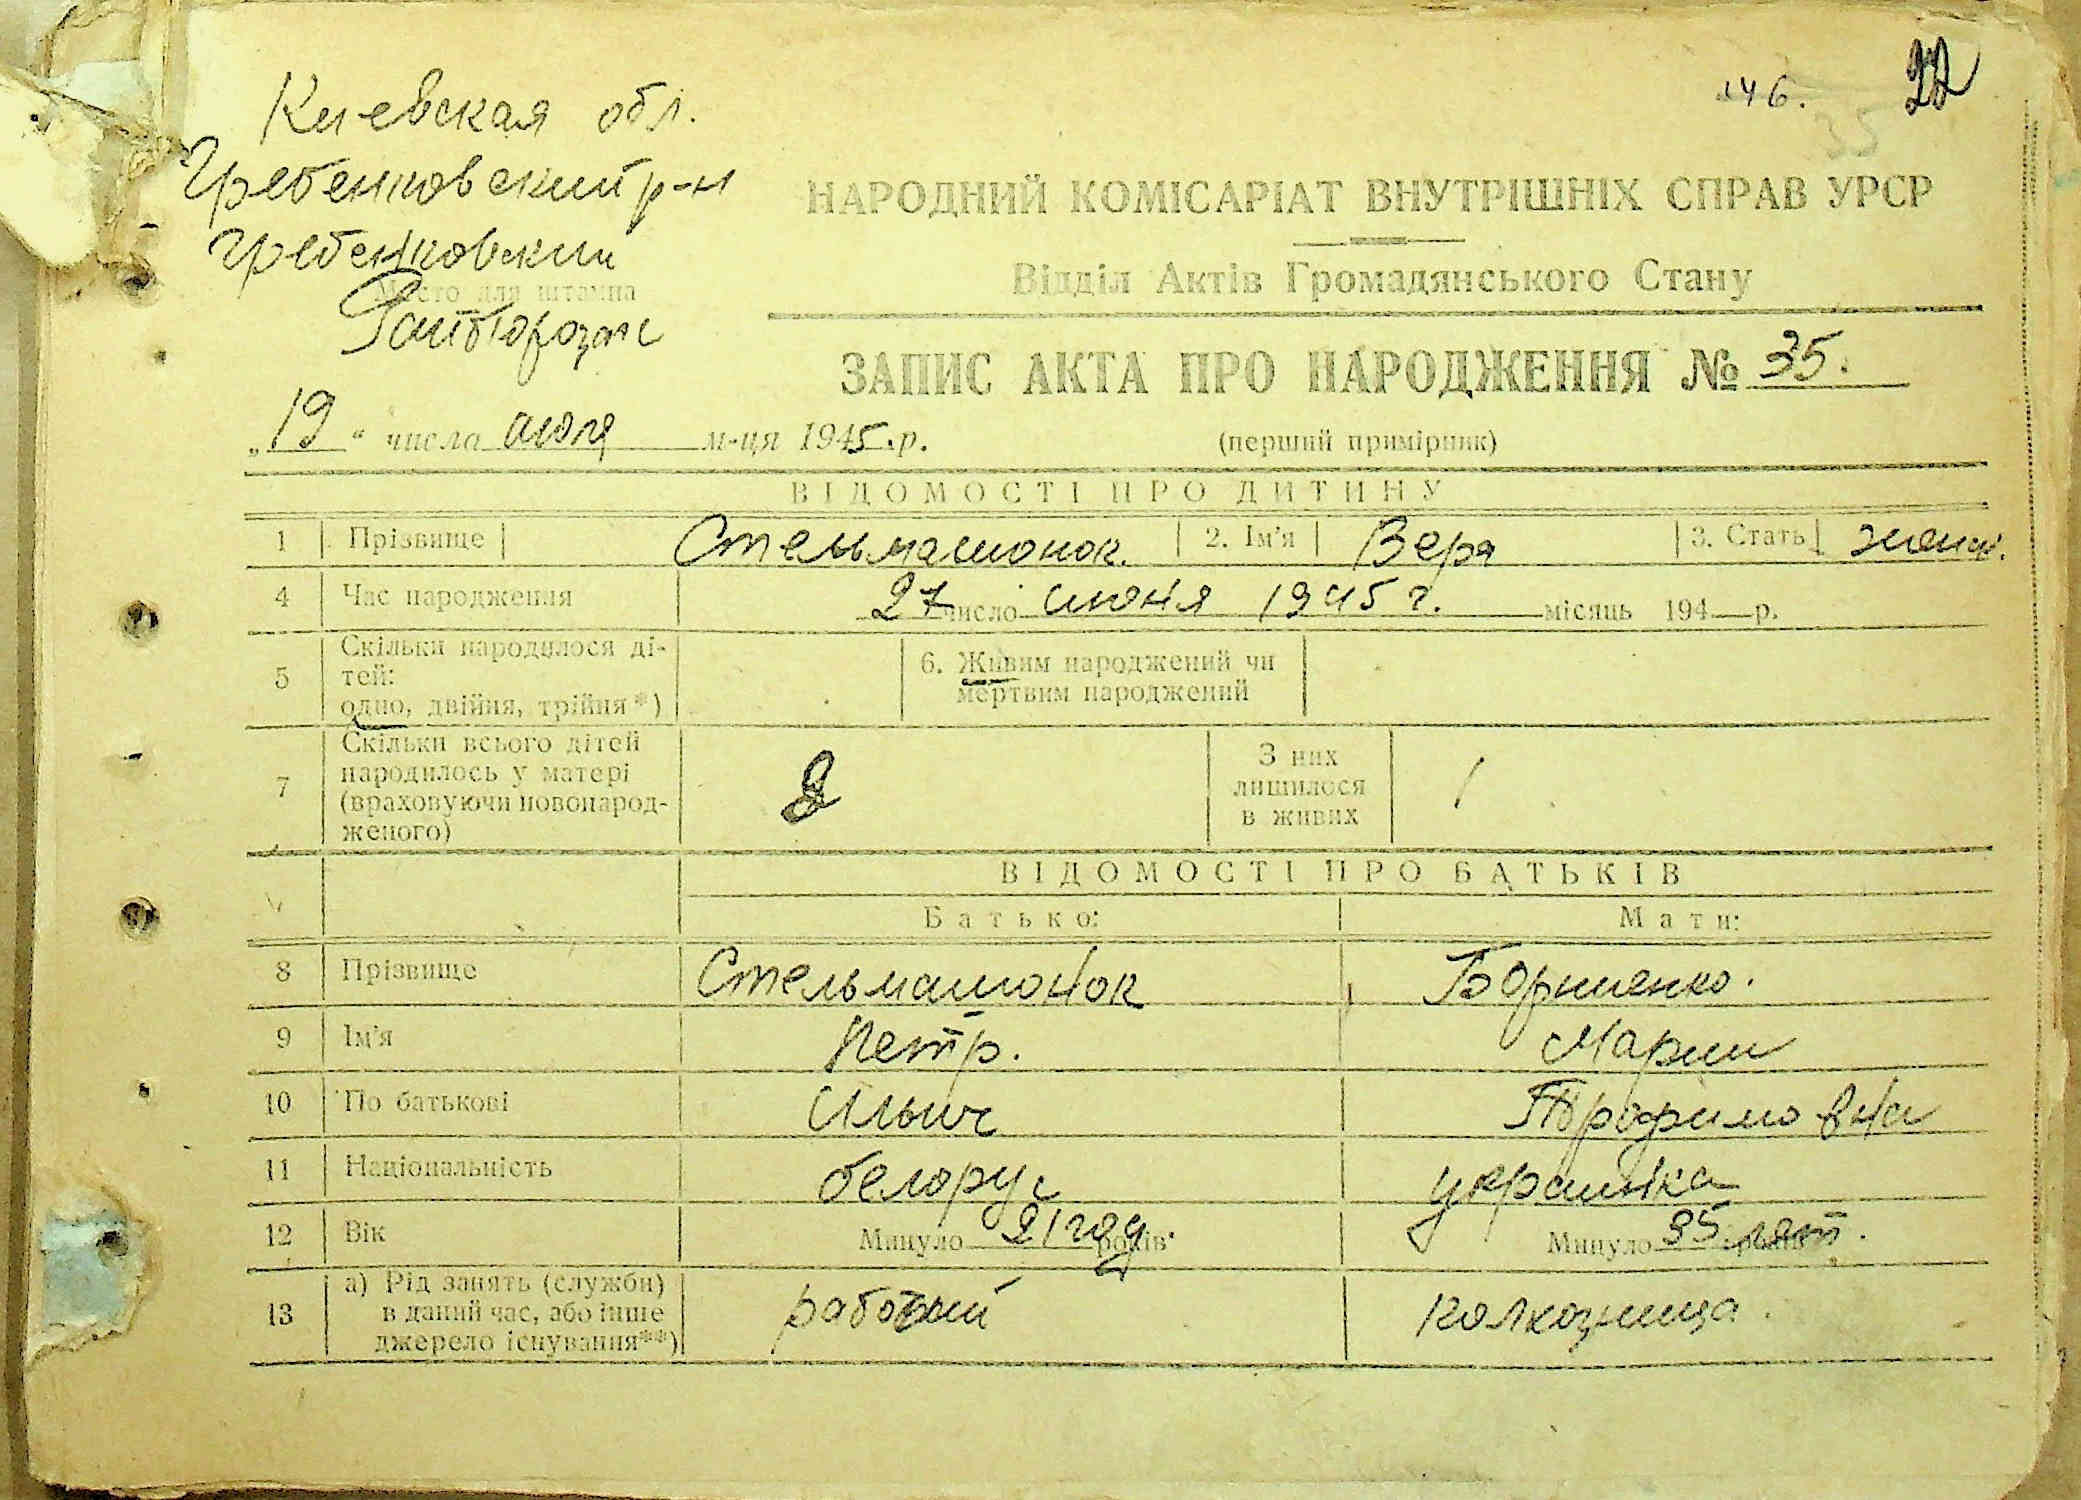 146. 22
35
Киевская обл.
Гребенковский р-н
Гребенковский
Місто для штампа
НАРОДНИЙ КОМІСАРІАТ ВНУТРІШНІХ СПРАВ УРСР
Відділ Актів Громадянського Стану
ЗАПИС АКТА ПРО НАРОДЖЕННЯ № 35.
„19“ числа июля м-ця 1945. р.
(перший примірник)
ВІДОМОСТІ ПРО ДИТИНУ
1 Прізвище Стельмашонок. 2. Ім'я Вера 3. Стать женск.
4 Час народження 27 число июня 1945 г. місяць 194 р.
5 Скільки народилося ді-
тей:
одно, двійня, трійня*)
6. Живим народжений чи
мертвим народжений
7 Скільки всього дітей
народилось у матері
(враховуючи новонарод-
женого)
2
З них
лишилося
в живих
1
ВІДОМОСТІ ПРО БАТЬКІВ
Батько: Мати:
8 Прізвище Стельмашонок
9 Ім'я Петр. Мария
10 По батькові Ильич Трофимовна
11 Національність белорус украинка
12 Вік Минуло 21 год років Минуло 35 лет років.
13 а) Рід занять (служби)
в даний час, або інше
джерело існування**)
рабочий колхозница.